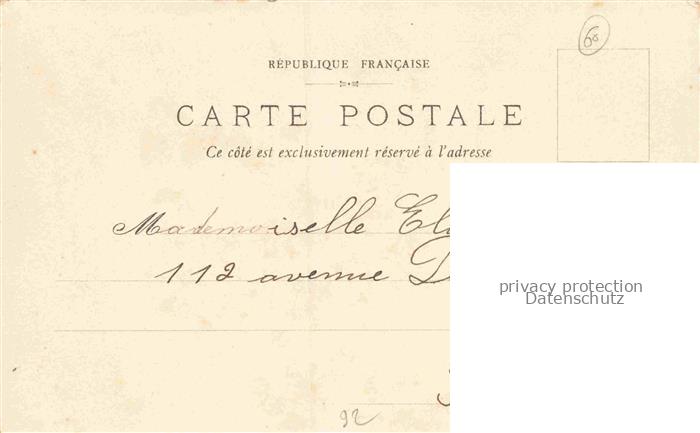 60
RÉPUBLIQUE FRANÇAISE
CARTE POSTALE
Ce côté est exclusivement réservé à l'adresse
Mademoiselle
112 avenue
privacy protection
Datenschutz
92